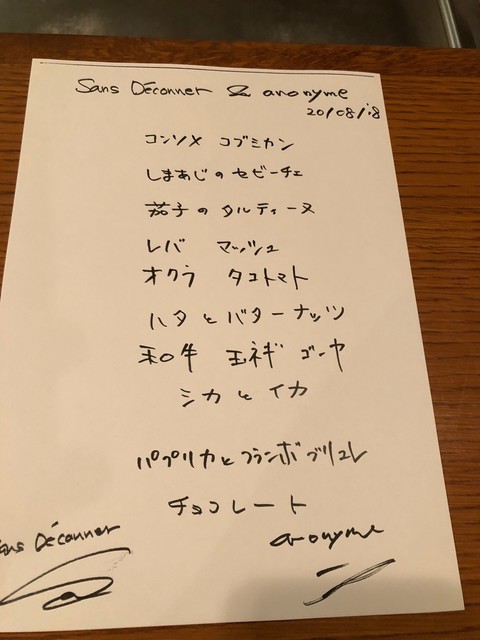 Sans Déconner & anonyme
20/08/18
コンソメ コブミカン
しまあじのセビーチェ
茄子のタルティーヌ
レバ マッシュ
オクラ タコトマト
ハタとバターナッツ
和牛 玉ネギ ゴーヤ
シカとイカ
パプリカとフランボブリュレ
チョコレート
Sans Déconner
anonyme